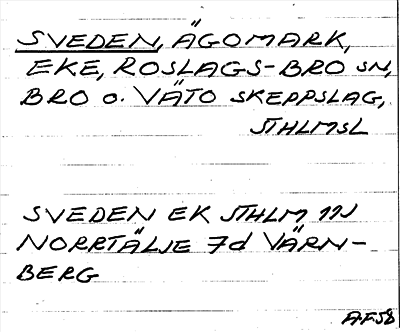 SVEDEN, ÄGOMARK,
EKE, ROSLAGS-BRO SN,
BRO O. VÄTÖ SKEPPSLAG,
STHLMSL
SVEDEN EK STHLM 11J
NORRTÄLJE 7d VÄRN-
BERG
AF58